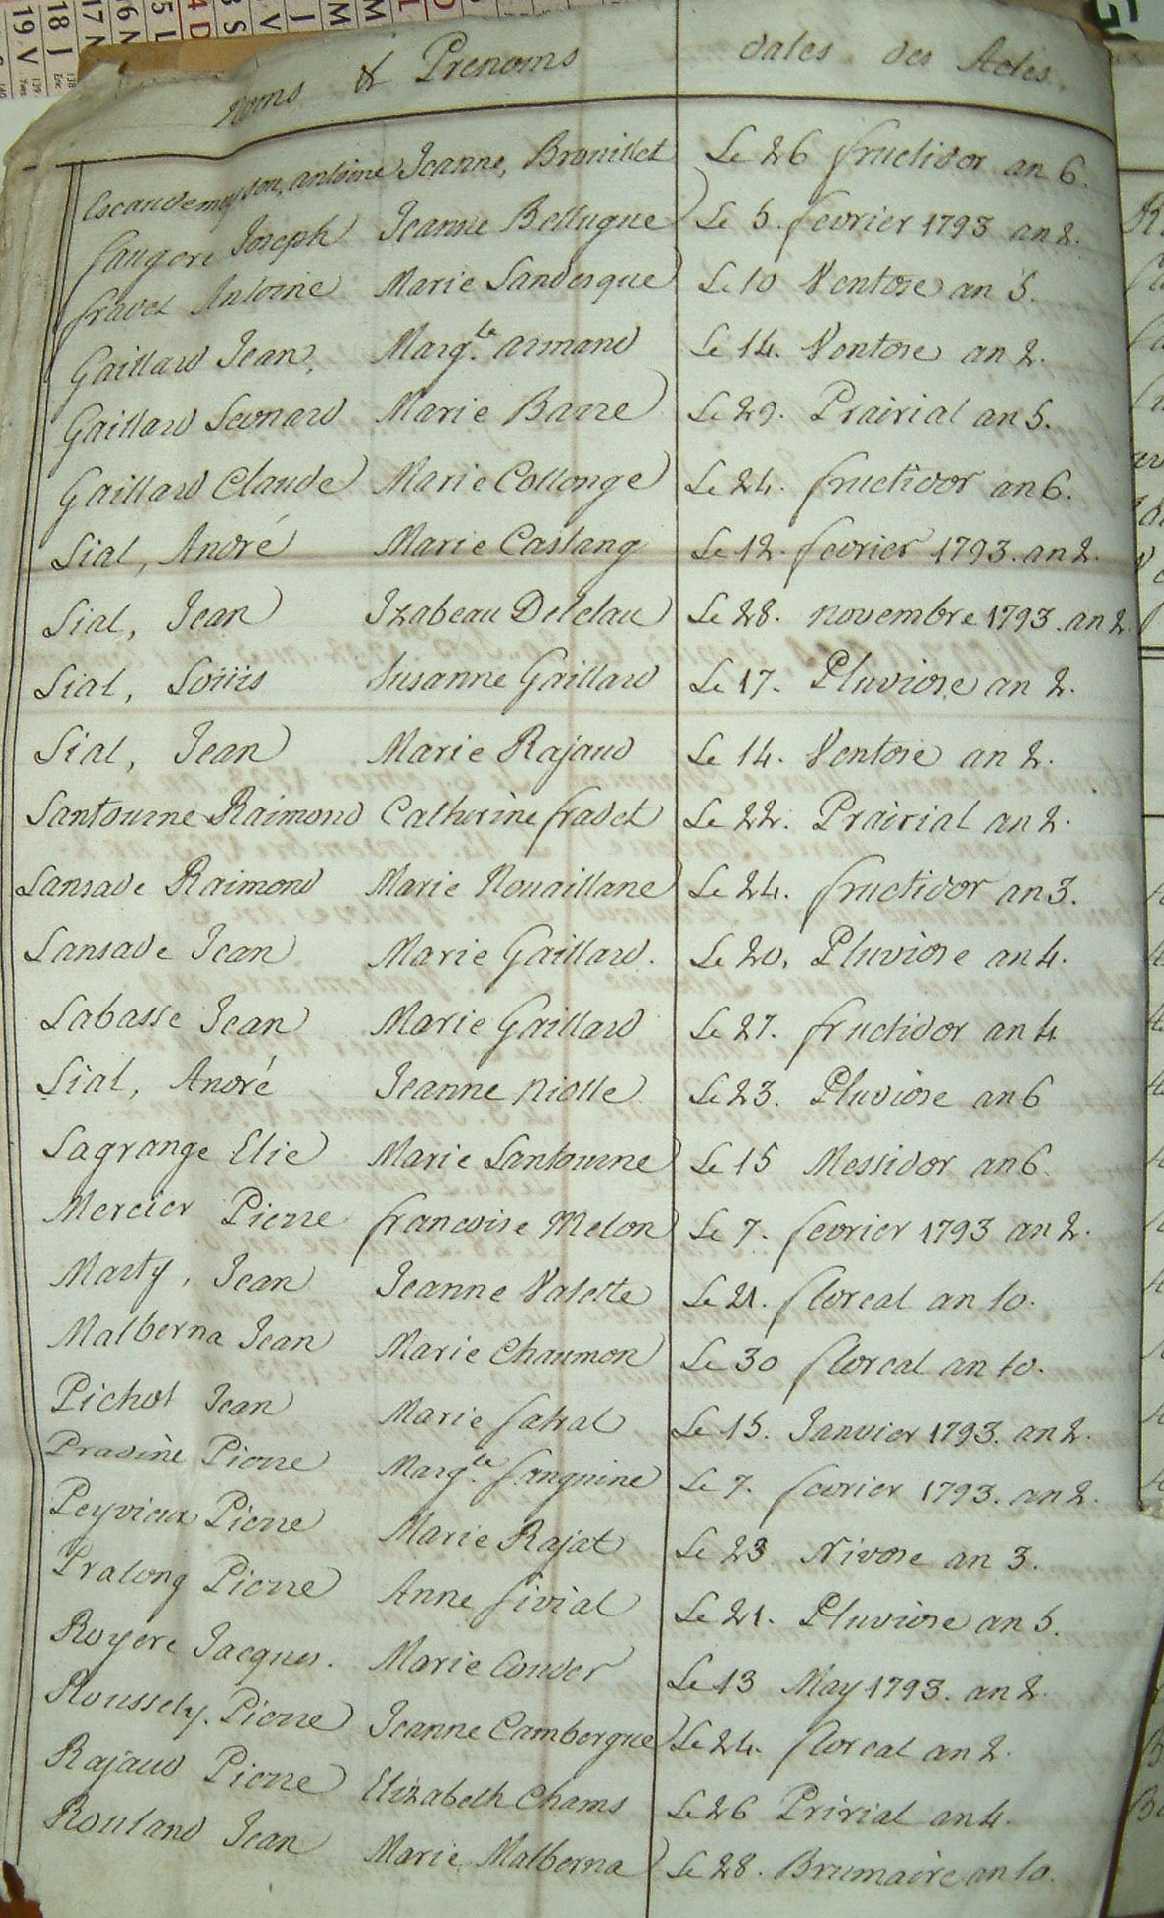 Noms & Prenoms dates des Actes
Escaudemayson, antoine Jeanne, Brouillet Le 26 fructidor an 6.
faugere Joseph Jeanne Bellugue Le 5. fevrier 1793 an 2.
fradet Antoine Marie Landesque Le 10 Ventose an 5.
Gaillard Jean, Marg.te armand Le 14. Ventose an 2.
Gaillard Leonard Marie Barre Le 29. Prairial an 5.
Gaillard Claude Marie Collonge Le 24. fructidor an 6.
Lial, André Marie Castang Le 12. fevrier 1793. an 2.
Lial, Jean Izabeau Delclau Le 28. novembre 1793. an 2.
Lial, Loüis Susanne Gaillard Le 17. Pluviose an 2.
Lial, Jean Marie Rajaud Le 14. Ventose an 2.
Lantourne Raimond Catherine fradet Le 22. Prairial an 2.
Lansade Raimond Marie Nouaillane Le 24. fructidor an 3.
Lansade Jean Marie Gaillard. Le 20. Pluviose an 4.
Labasse Jean Marie Gaillard Le 27. fructidor an 4
Lial, André Jeanne niolle Le 23. Pluviose an 6
Lagrange Elie Marie Lantourne Le 15 Messidor an 6.
Mercier Pierre francoise Melon Le 7. fevrier 1793 an 2.
Marty, Jean Jeanne Valette Le 21. floreal an 10.
Malberna Jean Marie Chaumon Le 30 floreal an 10.
Pichot Jean Marie Le 15. Janvier 1793. an 2.
Pradine Pierre Marg.te fanguine Le 7. fevrier 1793. an 2.
Peyvieux Pierre Marie Rajat Le 23 Nivose an 3.
Pralong Pierre Anne fivial Le 21. Pluviose an 5.
Royere Jacques. Marie Couder Le 13 May 1793. an 2.
Roussely. Pierre Jeanne Cambergue Le 24. floreal an 2.
Rajaud Pierre Elizabeth Chams Le 26 Pririal an 4.
Rouland Jean Marie Malberna Le 28. Brumaire an 10.